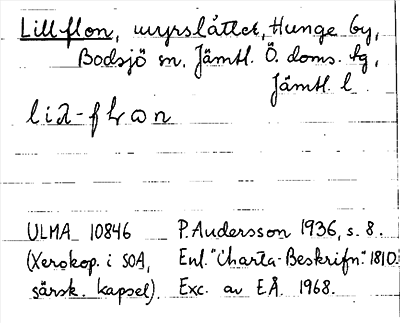 Lillflon, myrslåttet, Hunge by,
Bodsjö sn, Jämtl. Ö. doms. tg,
Jämtl. l
ULMA 10846 P. Andersson 1936, s. 8.
(Xerokop. i SOA, Enl. "Charta-Beskrifn." 1810.
särsk. kapsel). Exc. av E.Å. 1968.